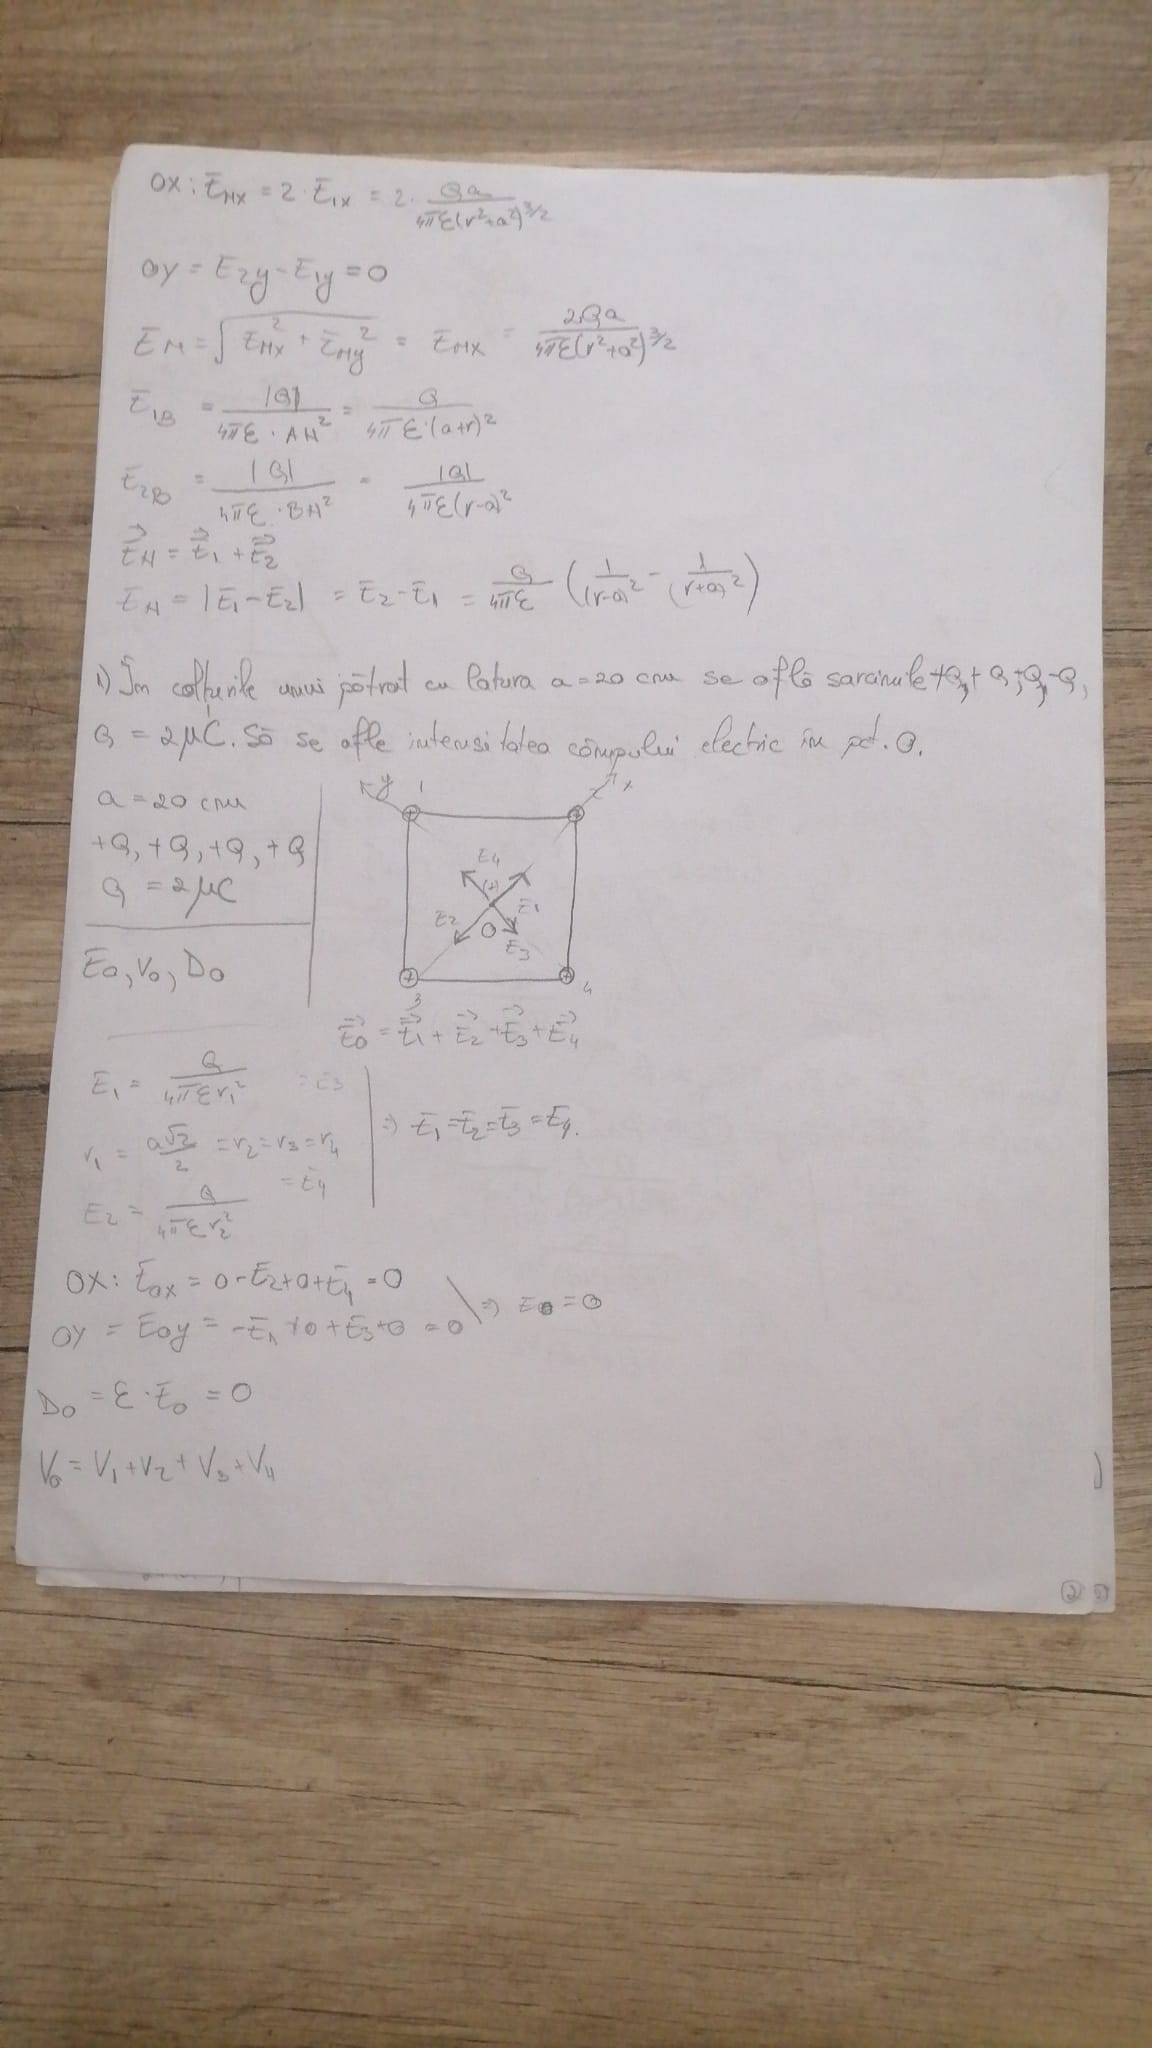 OX: E_MX = 2·E_1X = 2·Qa/(4πε(r²+a²)^3/2)
OY = E_2y - E_1y = 0
E_M = √(E_MX² + E_My²) = E_MX = 2Qa/(4πε(r²+a²)^3/2)
E_1B = |Q|/(4πε·AN²) = Q/(4πε·(a+r)²)
E_2B = |Q|/(4πε·BN²) = |Q|/(4πε(r-a)²)
E⃗_N = E⃗_1 + E⃗_2
E_N = |E_1 - E_2| = E_2 - E_1 = Q/(4πε) (1/(r-a)² - 1/(r+a)²)
1) În colțurile unui pătrat cu latura a = 20 cm se află sarcinile +Q, +Q, +Q, -Q,
Q = 2μC. Să se afle intensitatea câmpului electric în pct. O.
a = 20 cm
+Q, +Q, +Q, +Q
Q = 2μC
E_0, V_0, D_0
y 1 2 x
E_4 (+) E_1
E_2 O E_3
3 4
E⃗_0 = E⃗_1 + E⃗_2 + E⃗_3 + E⃗_4
E_1 = Q/(4πεr_1²) = E_3
r_1 = a√2/2 = r_2 = r_3 = r_4
= E_4
E_2 = Q/(4πεr_2²)
=> E_1 = E_2 = E_3 = E_4.
OX: E_0X = 0 - E_2 + 0 + E_4 = 0
OY = E_0y = -E_1 + 0 + E_3 + 0 = 0
=> E_0 = 0
D_0 = ε·E_0 = 0
V_0 = V_1 + V_2 + V_3 + V_4
2